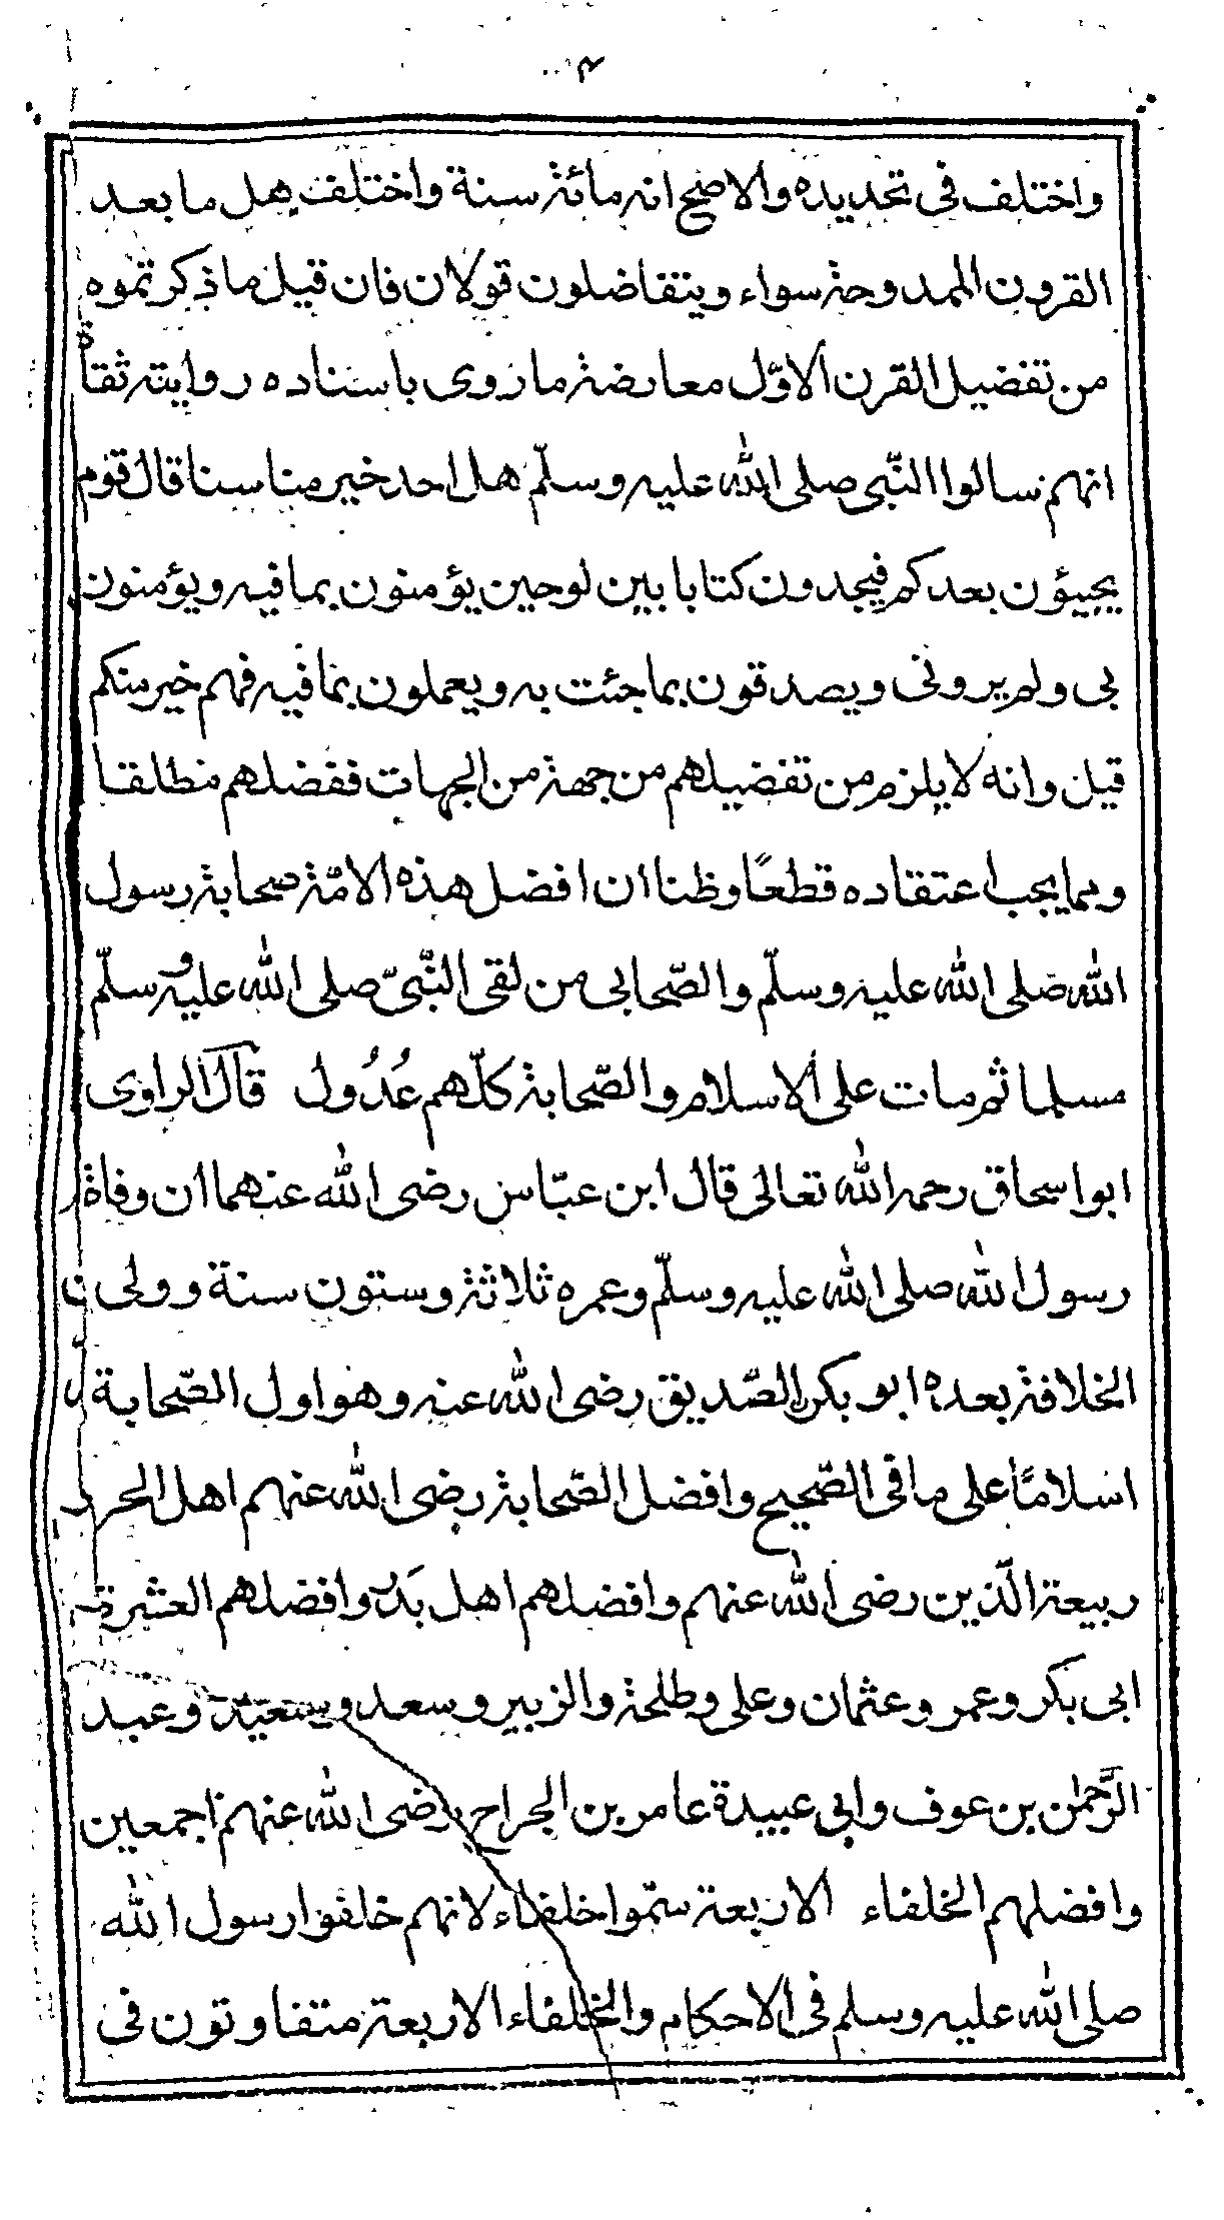 ٣٠٠
واختلف فى تحديده والاصح انه مائة سنة واختلف هل ما بعد
القرون الممدوحة سواء ويتفاضلون قولان فان قيل ما ذكرتموه
من تفضيل القرن الاوّل معارضة ما روى باسناده رواية ثقاة
انهم سالوا النّبى صلى الله عليه وسلّم هل احد خير منا سنا قال قوم
يجيؤن بعدكم فيجدون كتابا بين لوحين يؤمنون بما فيه ويؤمنون
بى ولم يرونى ويصدقون بما جئت به ويعملون بما فيه فهم خير منكم
قيل وانه لا يلزم من تفضيلهم من جهة من الجهات ففضلهم مطلقا
ومما يجب اعتقاده قطعًا وظنا ان افضل هذه الامّة صحابة رسول
الله صلى الله عليه وسلّم والصّحابى من لقى النّبىّ صلى الله عليه وسلّم
مسلما ثم مات على الاسلام والصّحابة كلّهم عُدُول قال الراوى
ابو اسحاق رحمه الله تعالى قال ابن عبّاس رضى الله عنهما ان وفاة
رسول الله صلى الله عليه وسلّم وعمره ثلاثة وستون سنة وولى
الخلافة بعده ابو بكر الصّديق رضى الله عنه وهو اول الصّحابة
اسلامًا على ما فى الصّحيح وافضل الصّحابة رضى الله عنهم اهل
ربيعة الّذين رضى الله عنهم وافضلهم اهل بَدر وافضلهم العشرة
ابى بكر وعمر وعثمان وعلى وطلحة والزبير وسعد وسعيد وعبد
الرَّحمٰن بن عوف وابى عبيدة عامر بن الجراح رضى الله عنهم اجمعين
وافضلهم الخلفاء الاربعة سمّوا خلفاء لانهم خلفوا رسول الله
صلى الله عليه وسلم فى الاحكام والخلفاء الاربعة متفاوتون فى